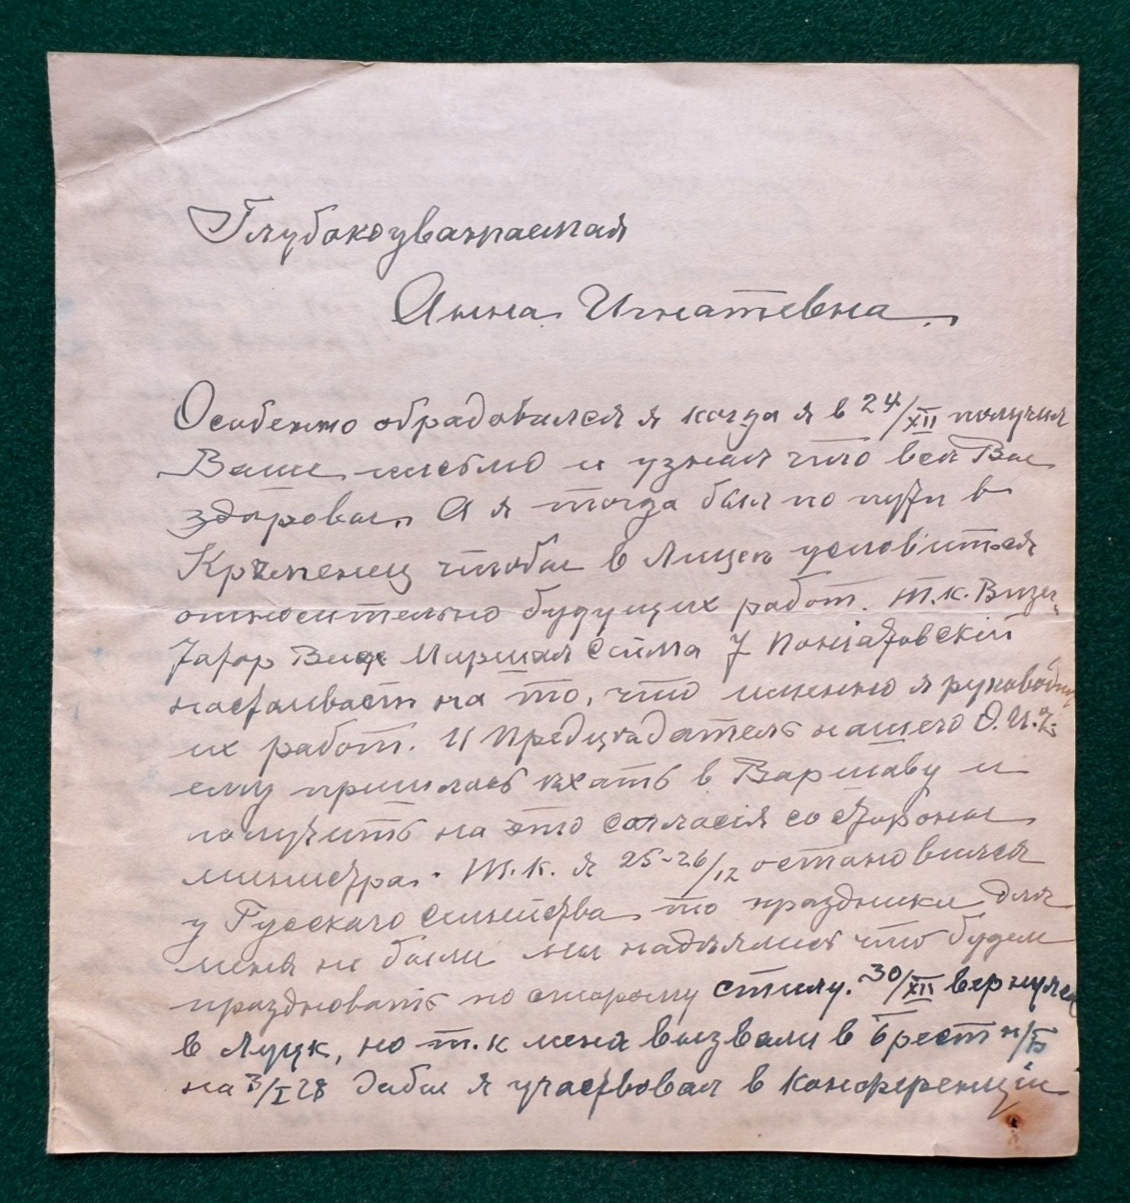 Глубокоуважаемая
Анна Игнатевна.
Особенно обрадовался я когда я в 24/XII получил
Ваше письмо и узнал что вся Вы
здоровы. А я тогда был по пути в
Кременец чтобы в Лицею условиться
относительно будущих работ. Т.к. Визи-
татор Вице Маршал Сейма J Поніатовскій
настаивает на то, что именно я руководил
их работ. И Председатель нашего О.И.
ему пришлось ехать в Варшаву и
получить на это согласія со стороны
министра. Т.к. я 25-26/12 остановился
у Русскаго семейства то праздники для
меня не были мы надѣялись что будем
праздновать по старому стилу. 30/XII вернулся
в Луцк, но т.к меня вызвали в Брест н/Б
на 3/I 28 дабы я участвовал в конференціи